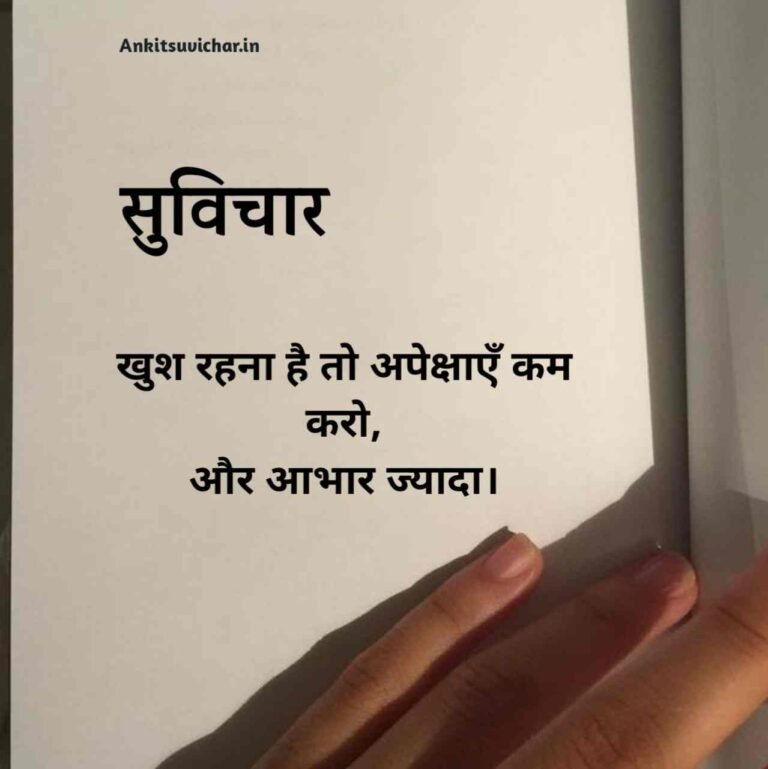 Ankitsuvichar.in
सुविचार
खुश रहना है तो अपेक्षाएँ कम
करो,
और आभार ज्यादा।